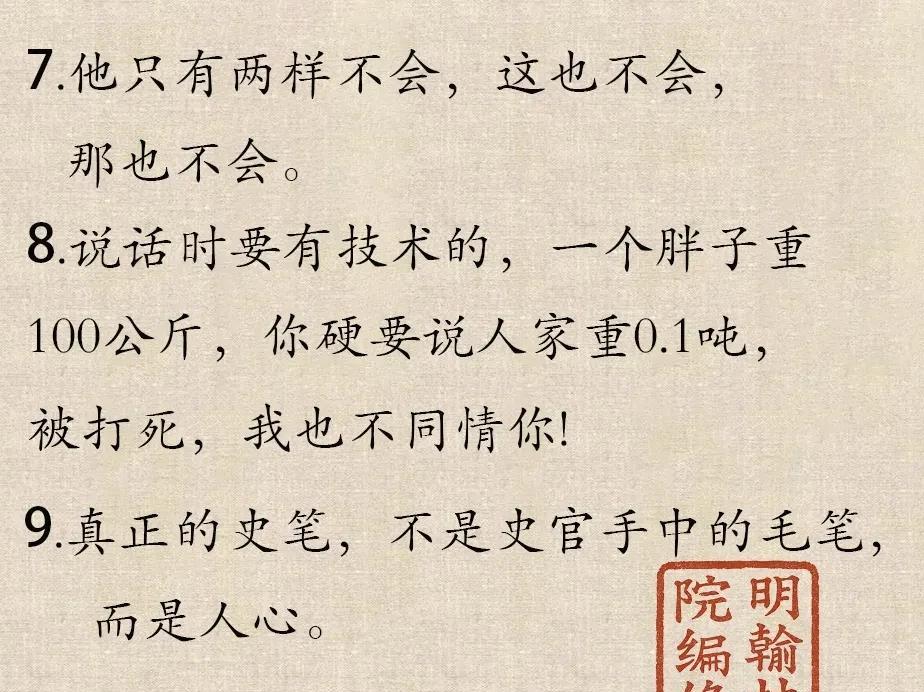 7.他只有两样不会，这也不会，
那也不会。
8.说话时要有技术的，一个胖子重
100公斤，你硬要说人家重0.1吨，
被打死，我也不同情你!
9.真正的史笔，不是史官手中的毛笔，
而是人心。
明翰
院编